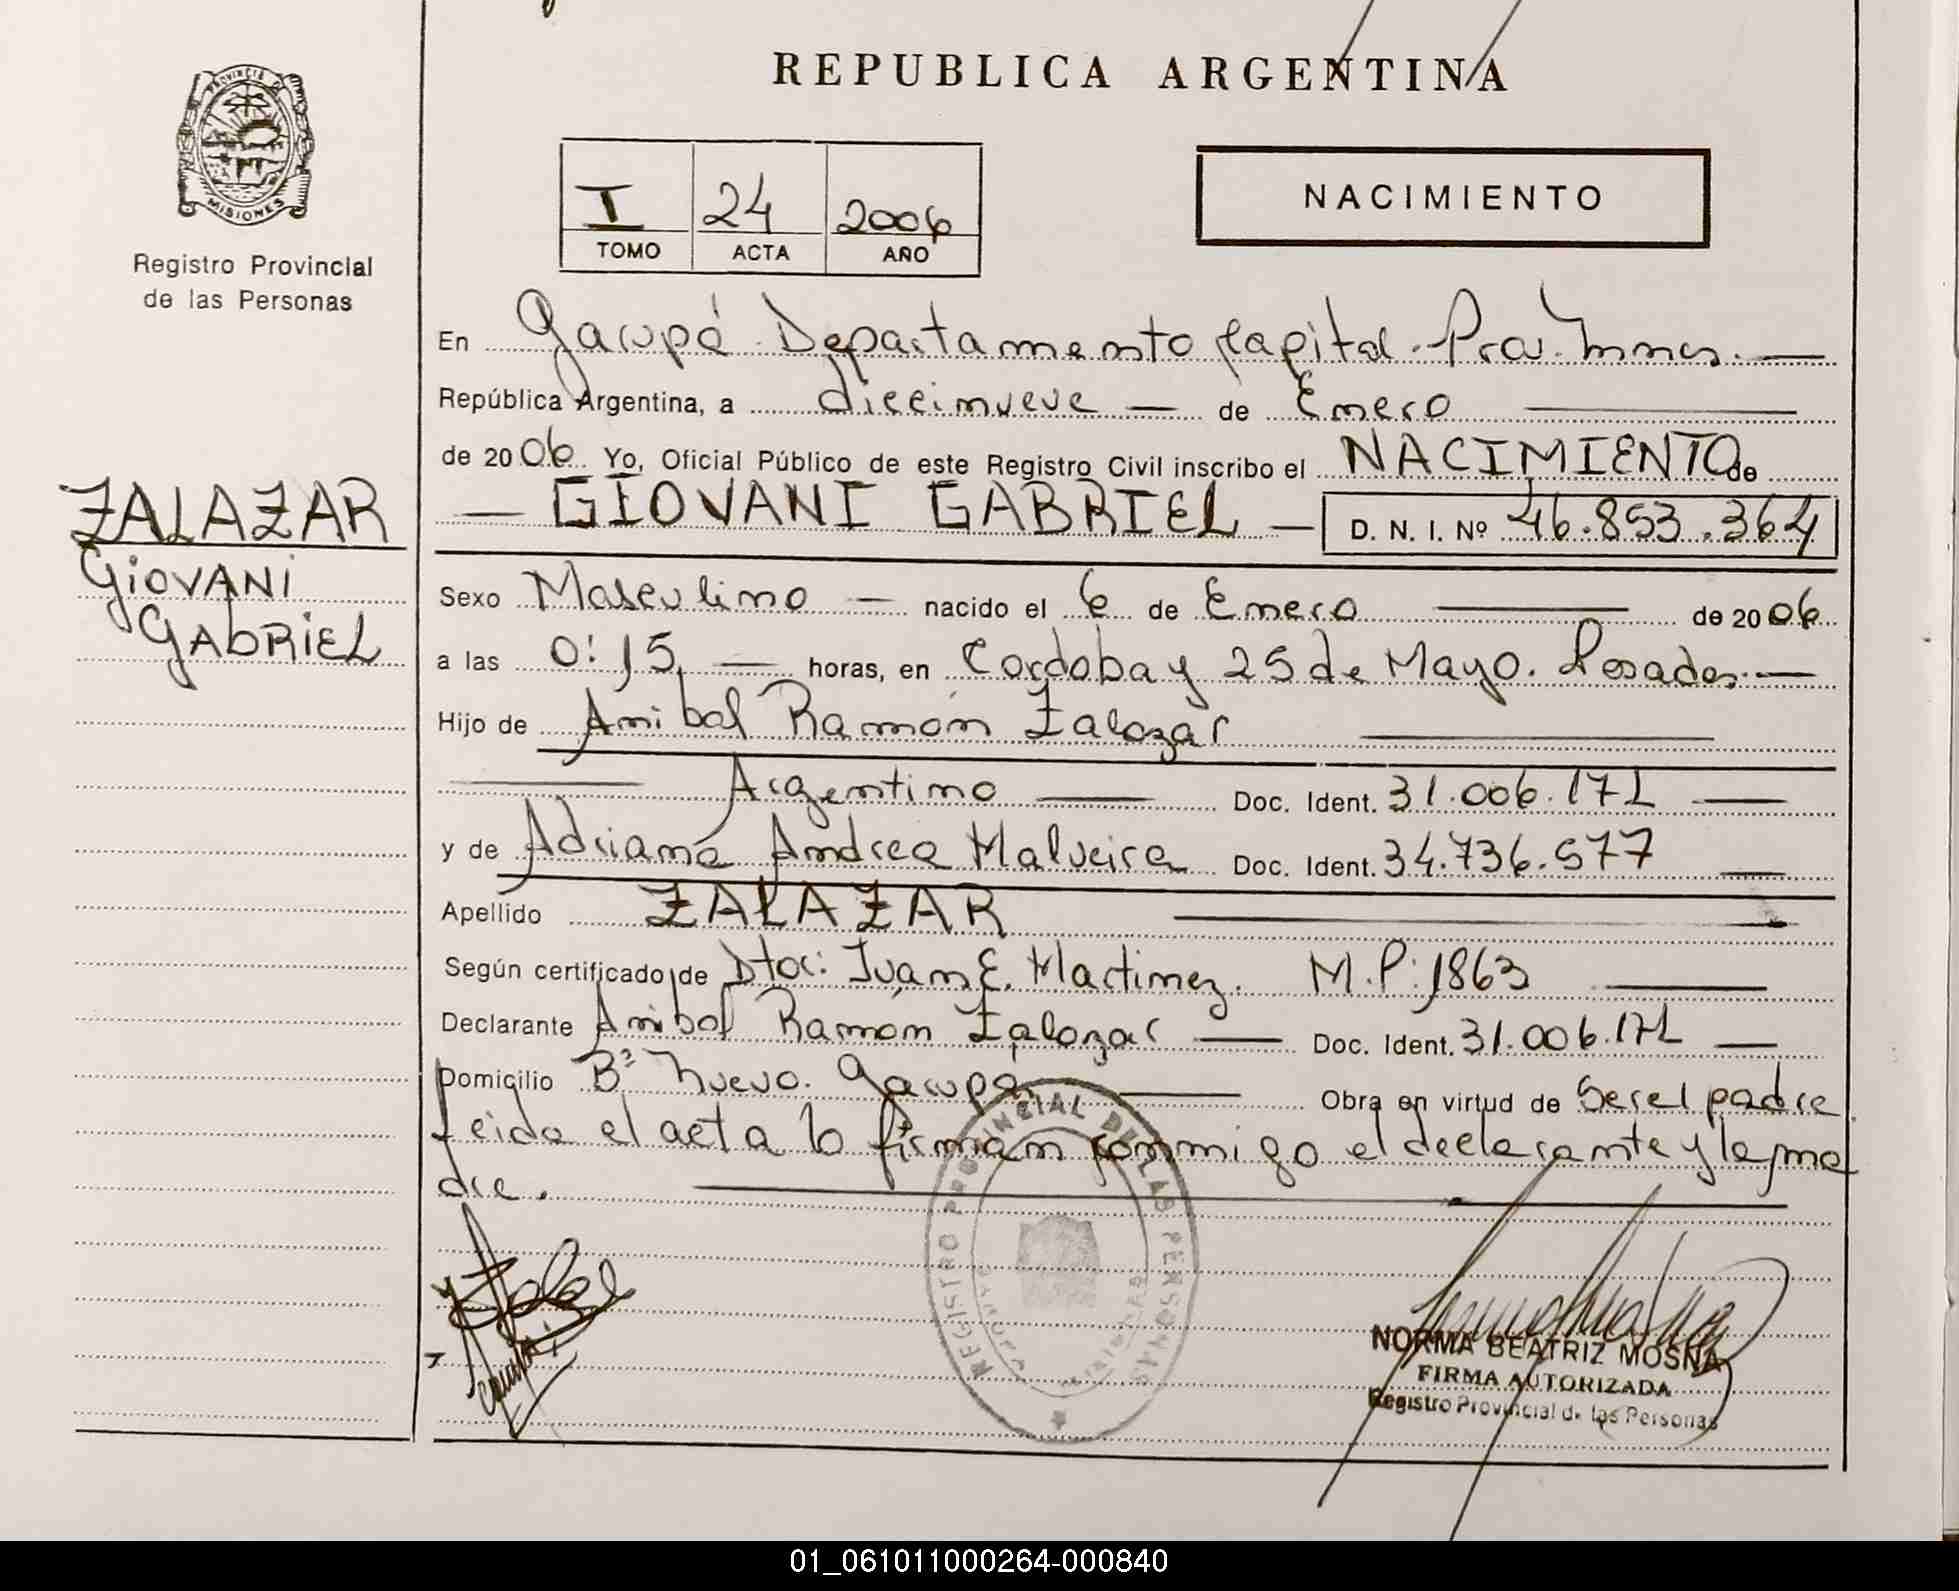 REPUBLICA ARGENTINA
PROVINCIA
MISIONES
Registro Provincial
de las Personas
I 24 2006
TOMO ACTA AÑO
NACIMIENTO
ZALAZAR
GiOVANi
GAbRiEL
En Garupá Departamento Capital. Prov. Mnes.
República Argentina, a diecinueve de Enero
de 2006 Yo, Oficial Público de este Registro Civil inscribo el NACIMIENTO de
GIOVANI GABRIEL D. N. I. Nº 46.853.364
Sexo Masculino nacido el 6 de Enero de 2006
a las 0:15 horas, en Cordoba y 25 de Mayo. Posadas.
Hijo de Anibal Ramón Zalazar
Argentino Doc. Ident. 31.006.171
y de Adriana Andrea Malveira Doc. Ident. 34.736.577
Apellido ZALAZAR
Según certificado de Dtor: Juan E. Martinez. M.P: 1863
Declarante Anibal Ramón Zalazar Doc. Ident. 31.006.171
Domicilio Bº Nuevo. Garupá Obra en virtud de Ser el padre
Leida el acta lo firman conmigo el declarante y la ma
dre.
REGISTRO PROVINCIAL DE LAS PERSONAS
NORMA BEATRIZ MOSNA
FIRMA AUTORIZADA
Registro Provincial de las Personas
01_061011000264-000840